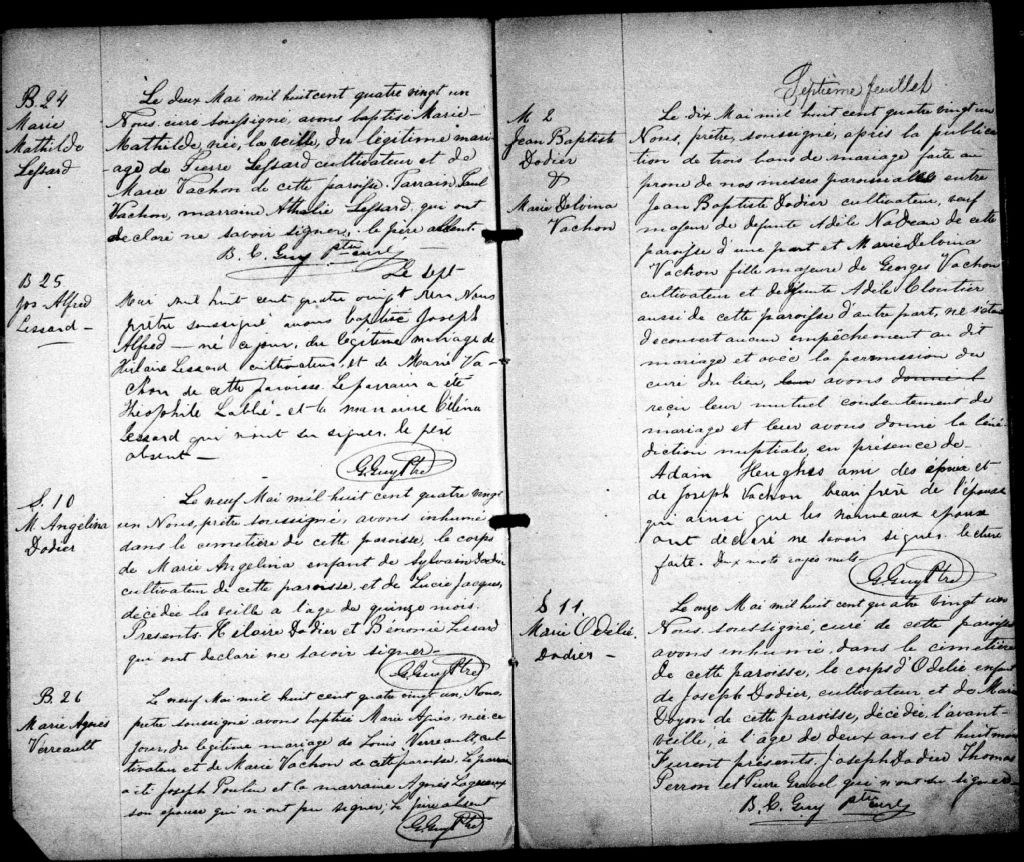 B. 24
Marie
Mathilde
Lessard
Le deux Mai mil huit cent quatre vingt un
Nous, curé soussigné, avons baptisé Marie-
Mathilde, née, la veille, du légitime mari-
age de Pierre Lessard cultivateur et de
Marie Vachon de cette paroisse. Parrain, Paul
Vachon, marraine, Athalie Lessard, qui ont
declaré ne savoir signer, le père absent.
B. C. Guy Ptre curé
B 25
Jos Alfred
Lessard —
Le sept
Mai mil huit cent quatre vingt un Nous
prêtre soussigné avons baptisé Joseph
Alfred — né ce jour, du légitime mariage de
Hilaire Lessard cultivateur, et de Marie Va-
chon de cette paroisse. Le parrain a été
Théophile Labbé - et la marraine Célina
Lessard qui n'ont su signer. le père
absent —
G. Guy Ptre
S. 10
M Angelina
Dodier
Le neuf Mai mil huit cent quatre vingt
un Nous, prêtre soussigné, avons inhumé
dans le cimetière de cette paroisse, le corps
de Marie Angelina enfant de Sylvain Dodier
cultivateur de cette paroisse, et de Lucie Jacques,
décédée la veille à l'age de quinze mois.
Presents Hilaire Dodier et Bénonie Lessard
qui ont declaré ne savoir signer —
G. Guy Ptre
B. 26
Marie Agnes
Verreault
Le neuf Mai mil huit cent quatre vingt un, Nous,
prêtre soussigné avons baptisé Marie Agnès, née ce
jour, du légitime mariage de Louis Verreault, cul-
tivateur et de Marie Vachon de cette paroisse. Le parrain
a été Joseph Poulin et la marraine Agnès Lagueux
son épouse qui n'ont pu signer; le père absent
G. Guy Ptre
Septième feuillet
M 2
Jean Baptiste
Dodier
&
Marie Delvina
Vachon
Le dix Mai mil huit cent quatre vingt un
Nous, prêtre, soussigné, après la publica-
tion de trois bans de mariage faite au
prone de nos messes paroissiales entre
Jean Baptiste Dodier cultivateur, veuf
majeur de defunte Adèle Nadeau de cette
paroisse d'une part et Marie Delvina
Vachon fille majeure de Georges Vachon
cultivateur et de defunte Adèle Cloutier
aussi de cette paroisse d'autre part, ne s'étant
decouvert aucun empêchement au dit
mariage et avec la permission du
curé du lieu, leur avons donné l
reçu leur mutuel consentement de
mariage et leur avons donné la béné-
diction nuptiale en présence de
Adam Heughes ami des époux et
de Joseph Vachon beau frère de l'épouse
qui ainsi que les nouveaux époux
ont déclaré ne savoir signer lecture
faite. Deux mots rayés nuls —
G. Guy Ptre
S 11.
Marie Odélie
Dodier —
Le onze Mai mil huit cent quatre vingt un
Nous, soussigné, curé de cette paroisse
avons inhumé, dans le cimetière
de cette paroisse, le corps d'Odélie enfant
de Joseph Dodier, cultivateur et de Marie
Doyon de cette paroisse, décédée l'avant-
veille, à l'age de deux ans et huit mois
Furent présents, Joseph Dodier Thomas
Perron et Pierre Gravel qui n'ont su signer —
B. C. Guy Ptre curé